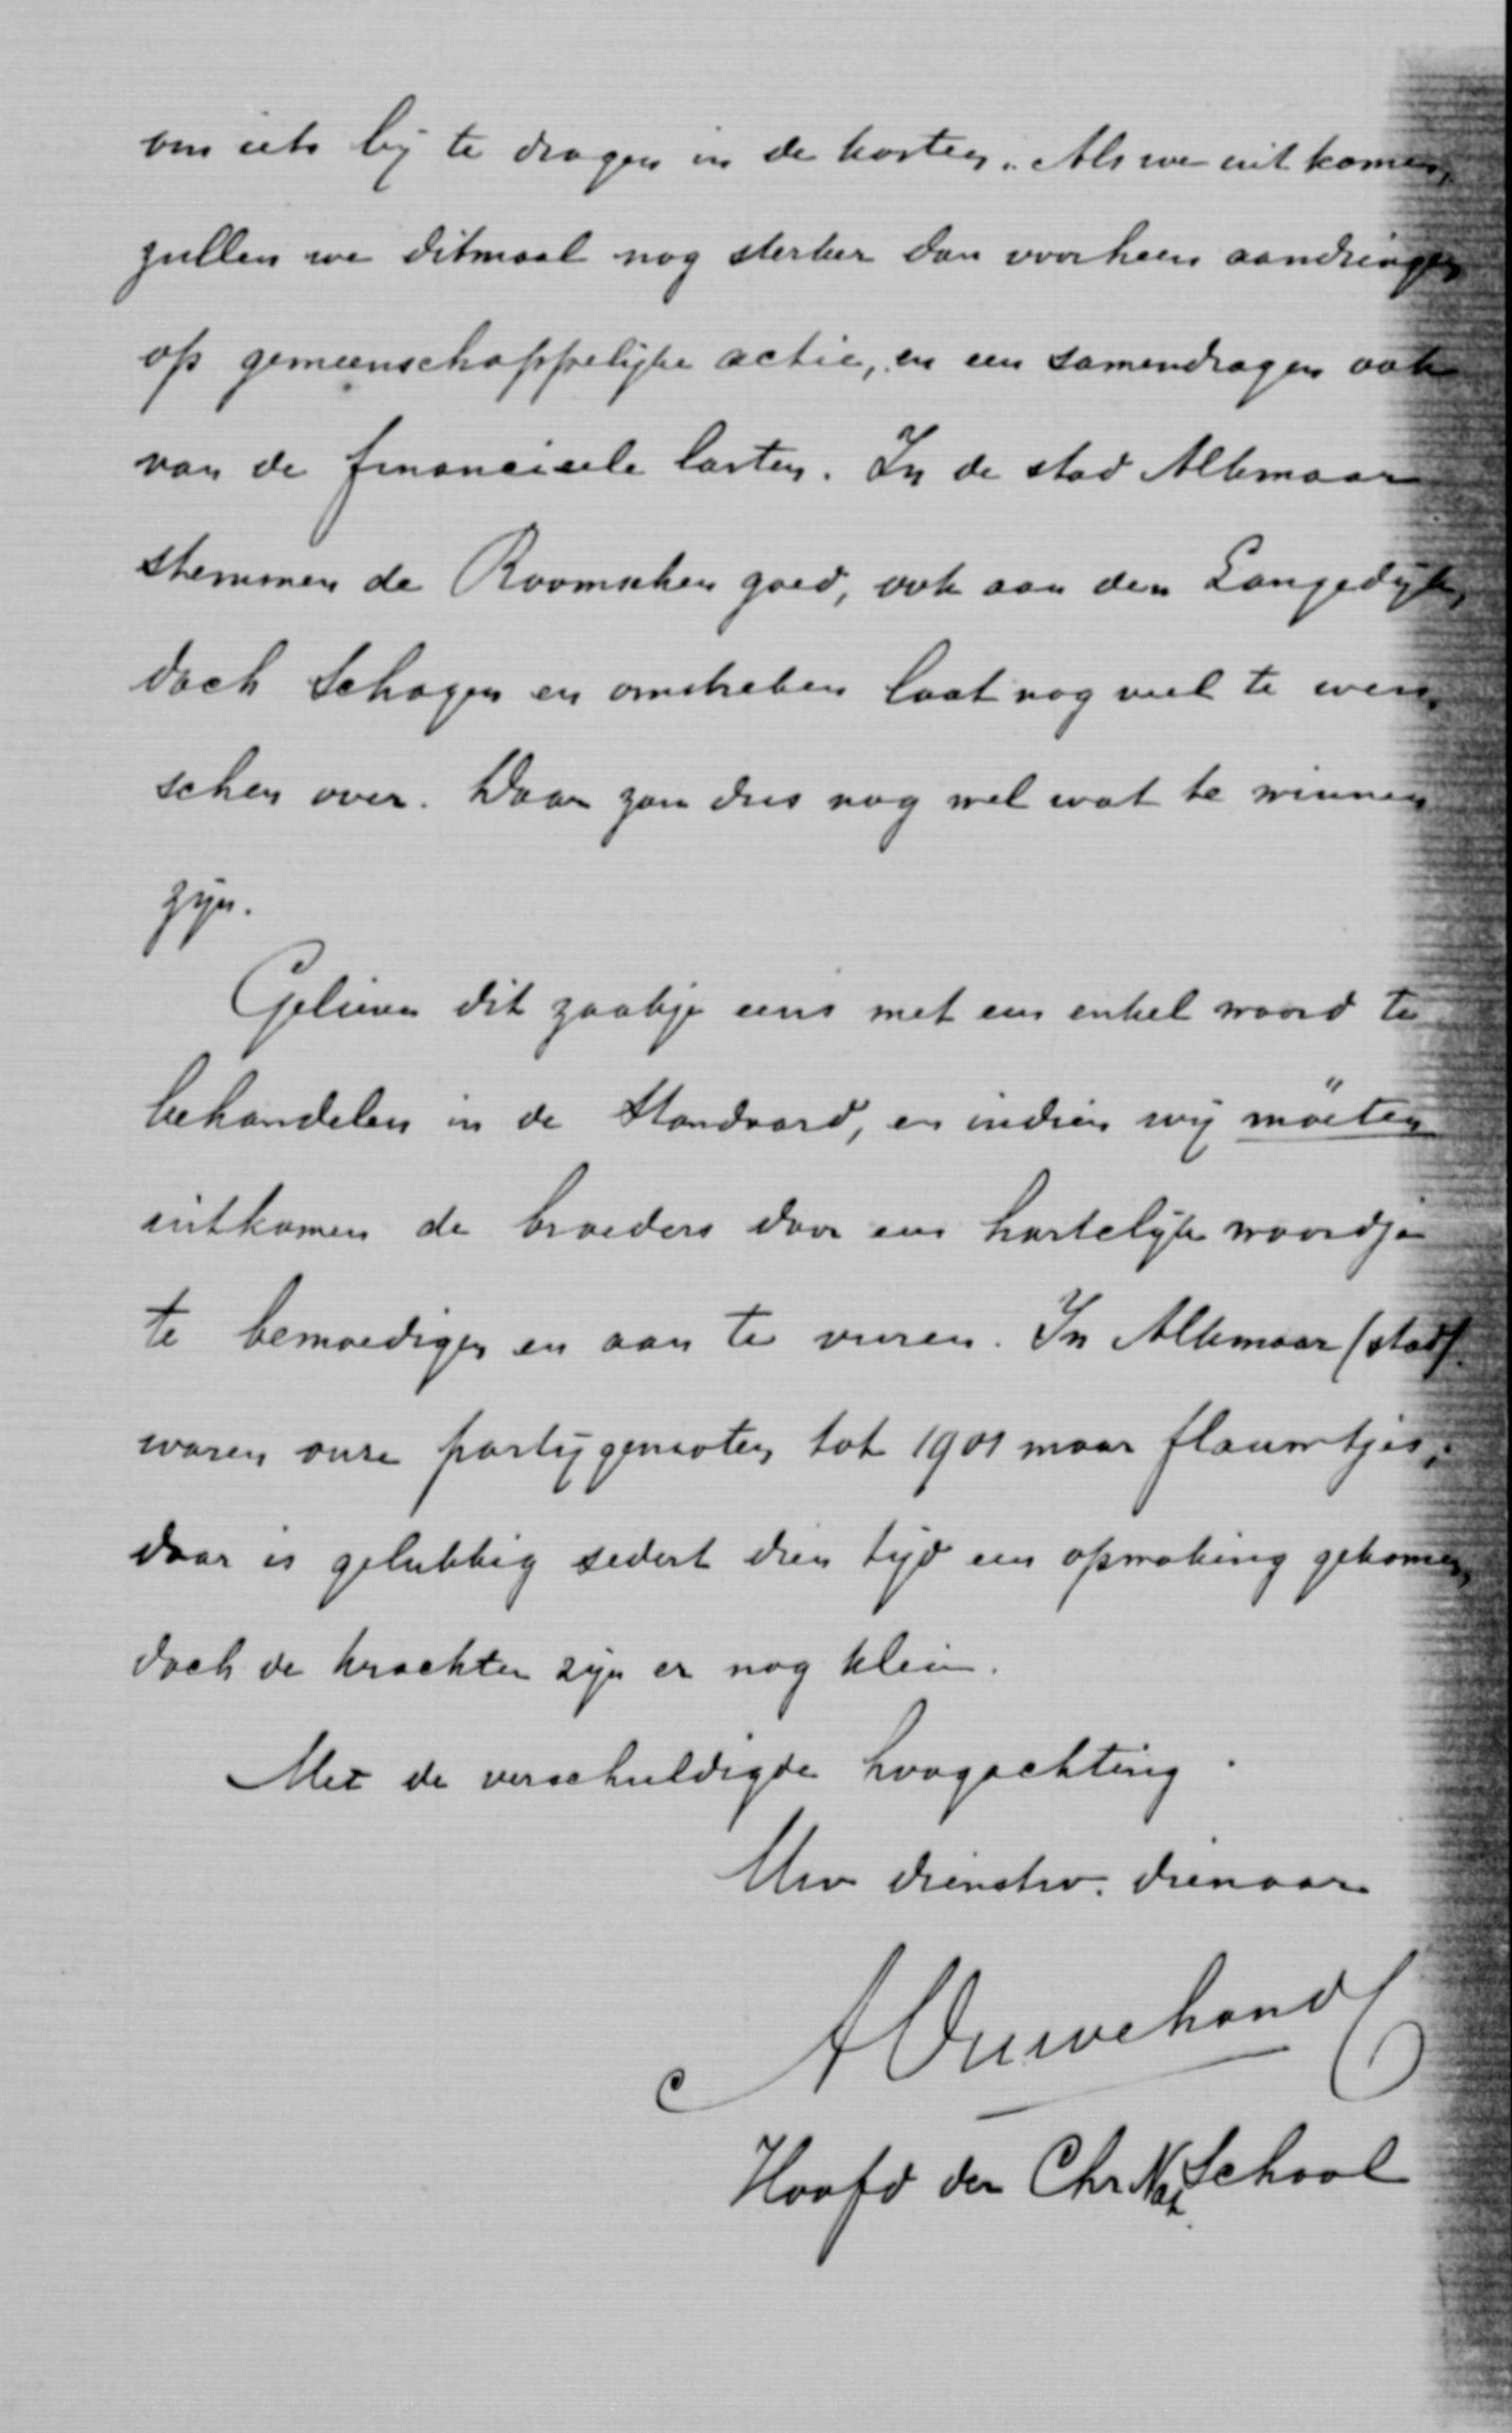 om iets bij te dragen in de kosten. Als we uit komen,
zullen we ditmaal nog sterker dan voorheen aandringen
op gemeenschappelijke actie, en een samendragen ook
van de financieele lasten. In de stad Alkmaar
stemmen de Roomschen goed, ook aan den Langedijk,
doch Schagen en omstreken laat nog veel te wen-
schen over. Daar zou dus nog wel wat te winnen
zijn.
Gelieve dit zaakje eens met een enkel woord te
behandelen in de Standaard, en indien wij moeten
uitkomen de broeders door een hartelijk woordje
te bemoedigen en aan te vuren. In Alkmaar (stad)
waren onze partijgenooten tot 1901 maar flauwtjes;
daar is gelukkig sedert dien tijd een opwaking gekomen,
doch de krachten zijn er nog klein.
Met de verschuldigde hoogachting
Uw dienstw. dienaar
A Ouwehand
Hoofd der Chr Nat. School